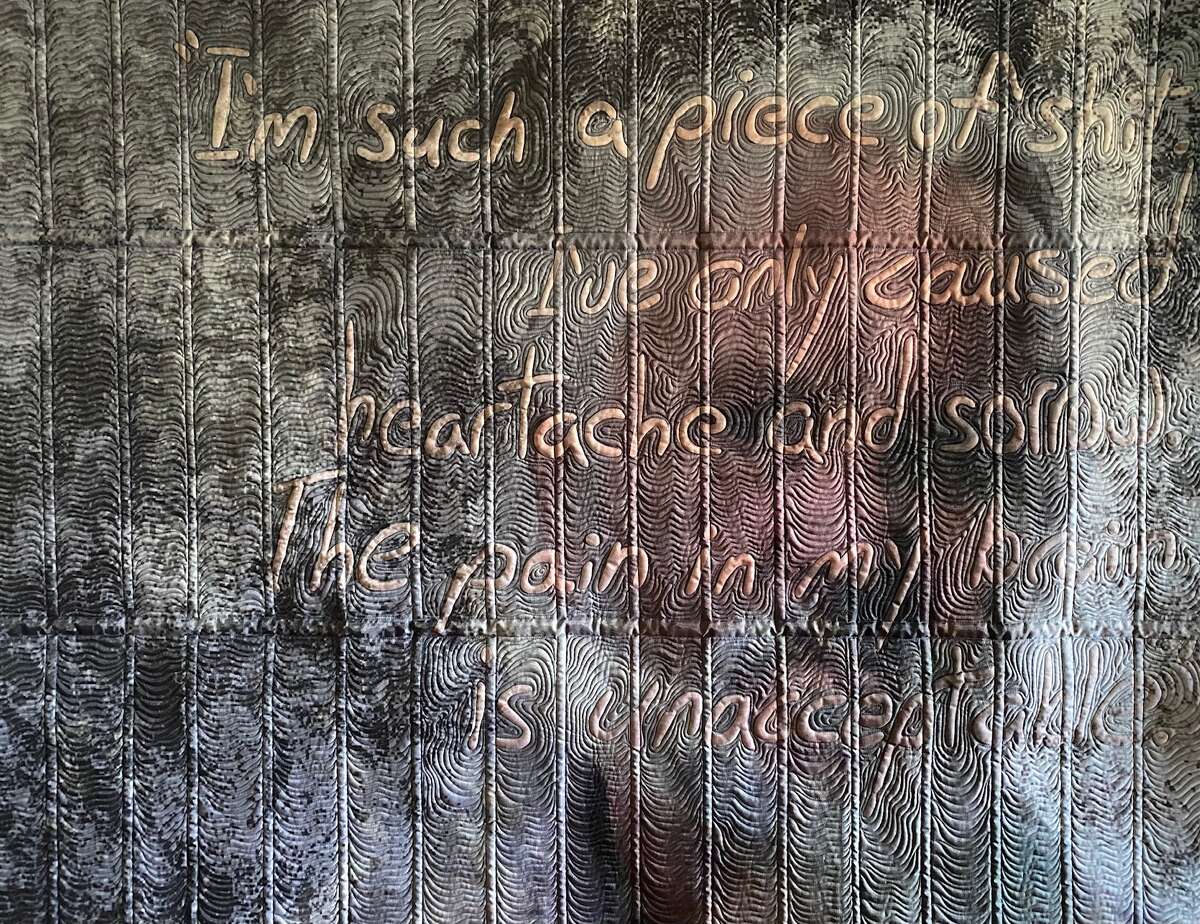 "I'm such a piece of shit!
I've only caused
heartache and sorrow.
The pain in my brain
is unacceptable.